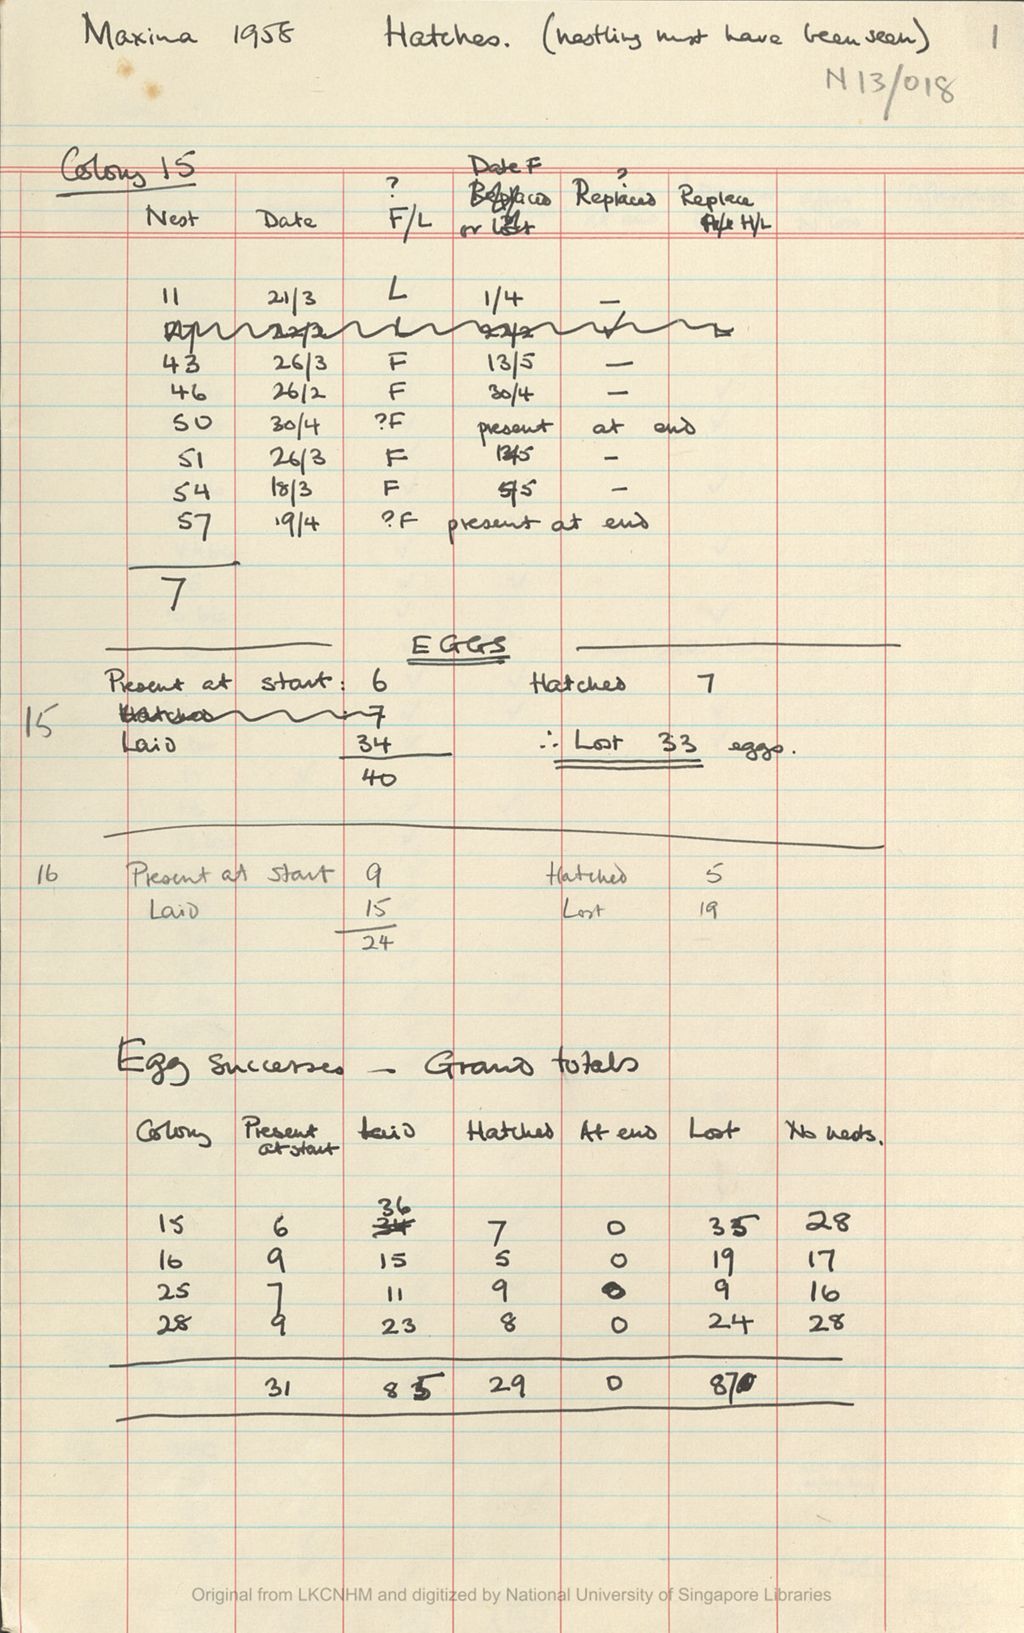 Maxina 1958 Hatches. (nestling must have been seen) 1
N13/018
Colony 15
Nest Date ? F/L Date F Replaced or lost ? Replaced Replace H/L
11 21/3 L 1/4 —
43 26/3 F 13/5 —
46 26/2 F 30/4 —
50 30/4 ?F present at end
51 26/3 F 13/5 —
54 18/3 F 5/5 —
57 19/4 ?F present at end
7
EGGS
Present at start: 6 Hatched 7
15 Hatched 7
Laid 34 ∴ Lost 33 eggs.
40
16 Present at start 9 Hatched 5
Laid 15 Lost 19
24
Egg successes — Grand totals
Colony Present at start Laid Hatched At end Lost No nests.
36
15 6 34 7 0 35 28
16 9 15 5 0 19 17
25 7 11 9 0 9 16
28 9 23 8 0 24 28
31 85 29 0 87
Original from LKCNHM and digitized by National University of Singapore Libraries